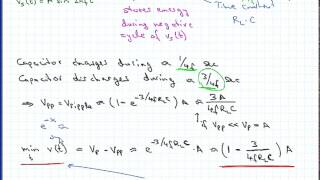 v_s(t) = A sin 2πf_c t
stores energy
during negative
cycle of v_s(t)
Time constant
R_L·C
Capacitor charges during a 1/4f sec
Capacitor discharges during a 3/4f sec
⇒ V_PP = V_ripple ≈ (1 - e^{-3/4fR_LC}) A ≈ 3A / 4fR_LC
if V_PP << V_P = A
e^{-x}
min_t v(t) = V_P - V_PP ≈ e^{-3/4fR_LC} · A ≈ (1 - 3/4fR_LC) A